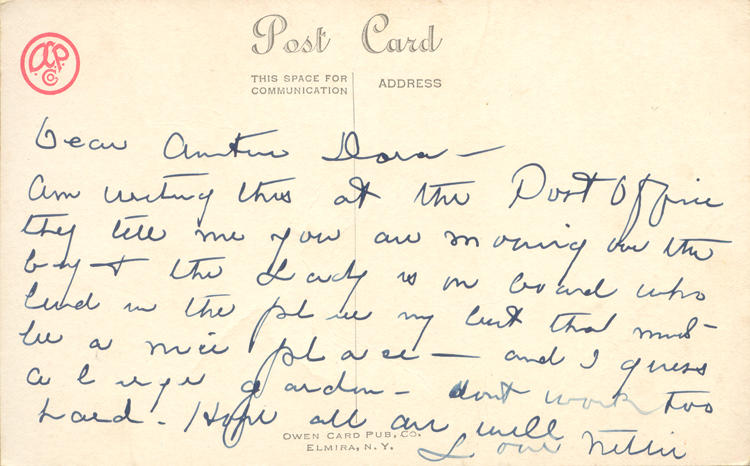 Post Card
A.C.P. Co.
THIS SPACE FOR COMMUNICATION
ADDRESS
Dear Auntie Dora —
Am writing this at the Post Office
they tell me you are moving over the
bay + the Lady is on board who
lived in the place my but that must
be a nice place — and I guess
a large garden - dont work too
hard. Hope all are well
Love Nettie
OWEN CARD PUB, CO.
ELMIRA, N.Y.